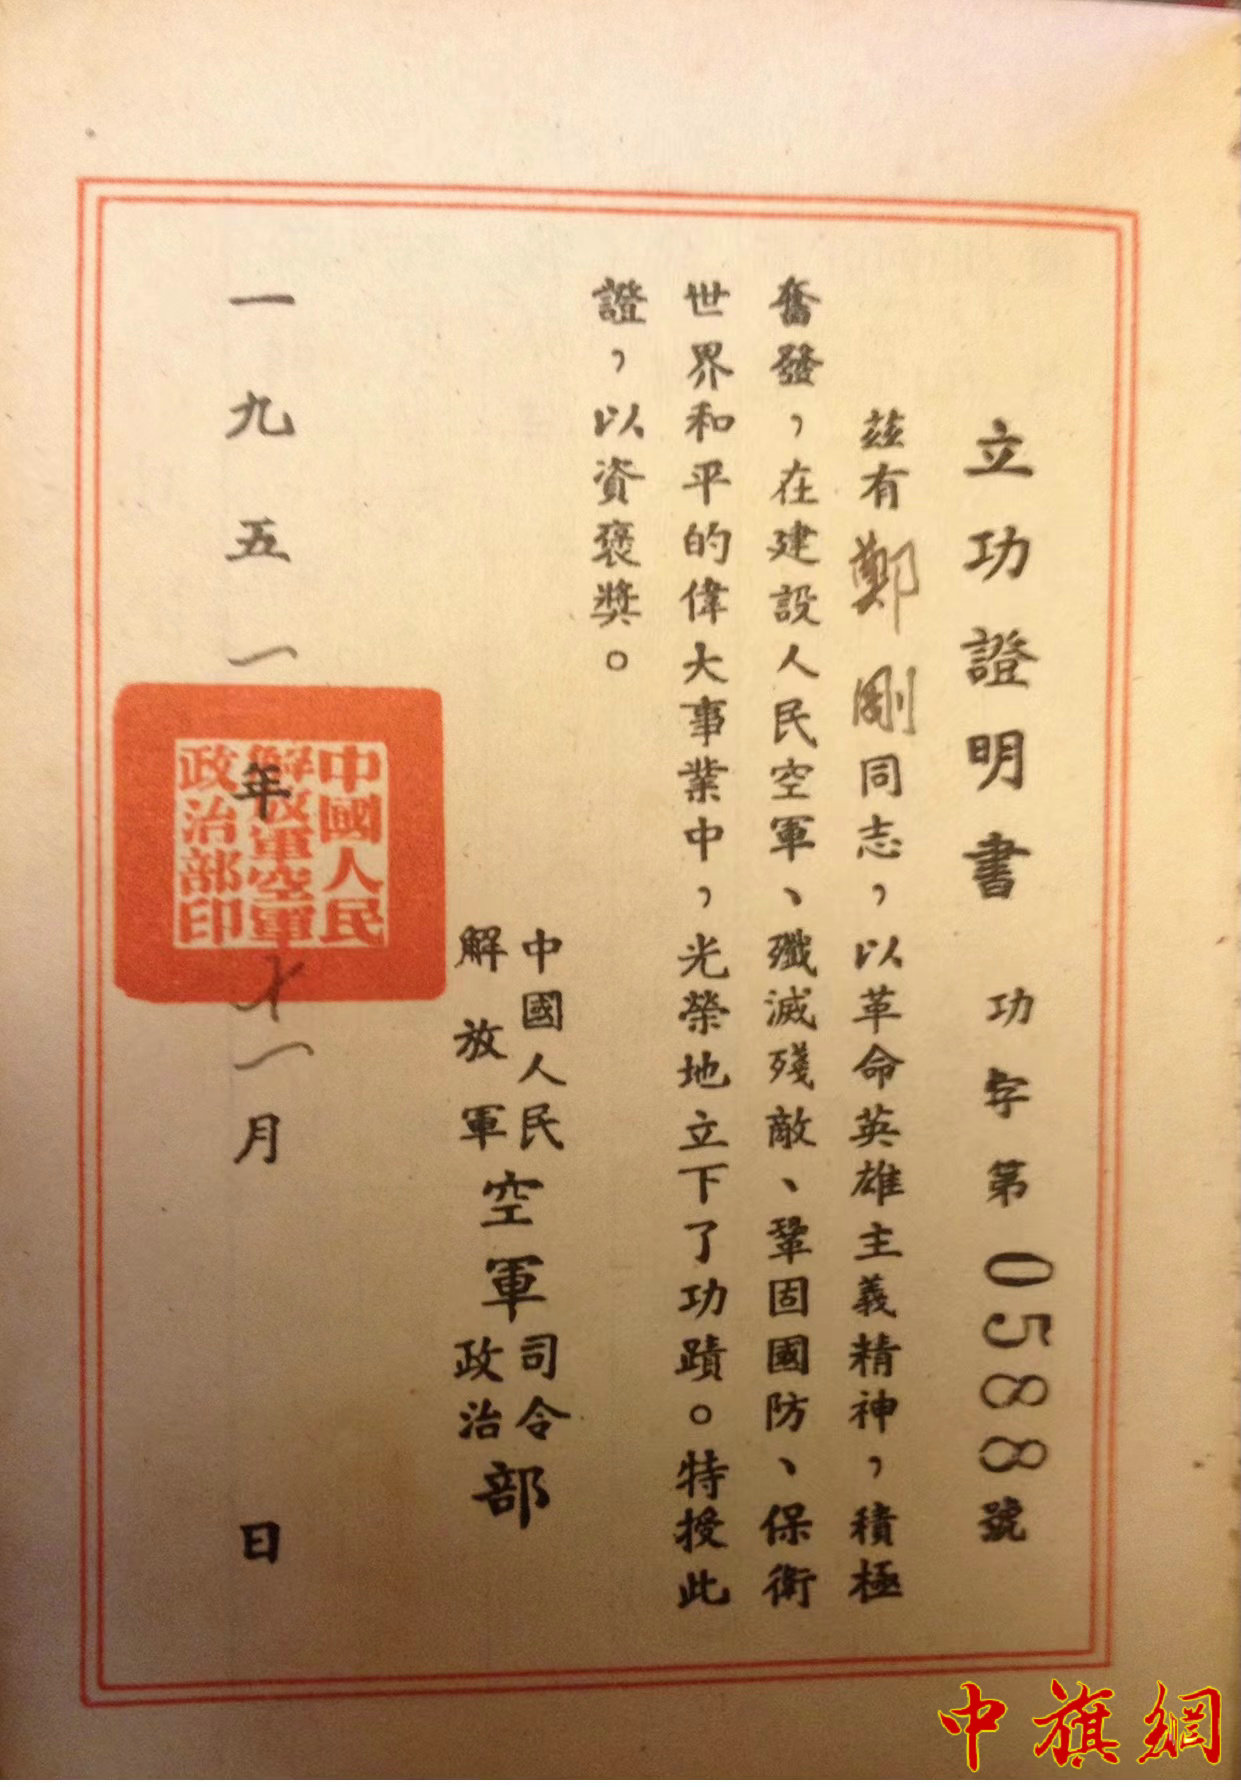 立功證明書 功字第0588號
茲有鄭剛同志，以革命英雄主義精神，積極
奮發，在建設人民空軍、殲滅殘敵、鞏固國防、保衛
世界和平的偉大事業中，光榮地立下了功蹟。特授此
證，以資褒獎。
中國人民
解放軍
空軍
司令
政治
部
一九五一年十一月 日
中國人民
解放軍空軍
政治部印
中旗網